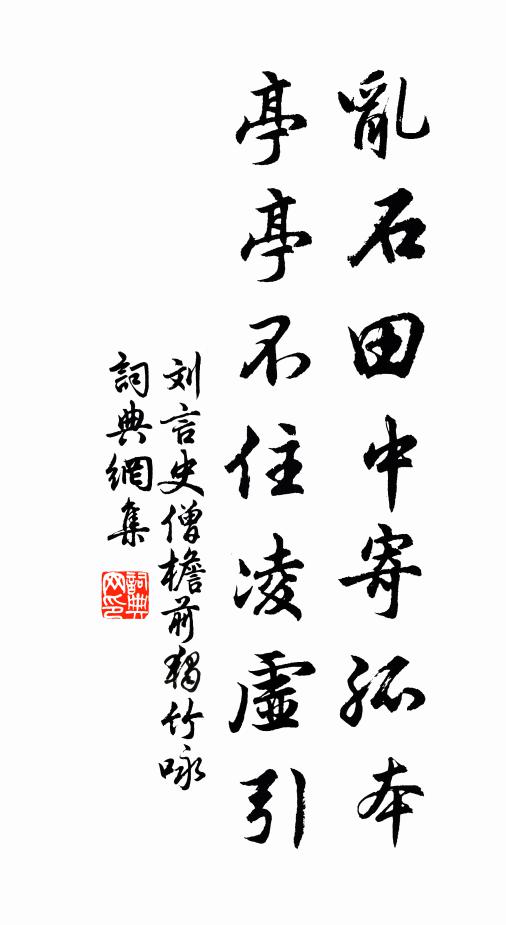 亂石田中寄孤本
亭亭不住凌虛引
刘言史僧檐前獨竹咏
詞典網集
詞典网印